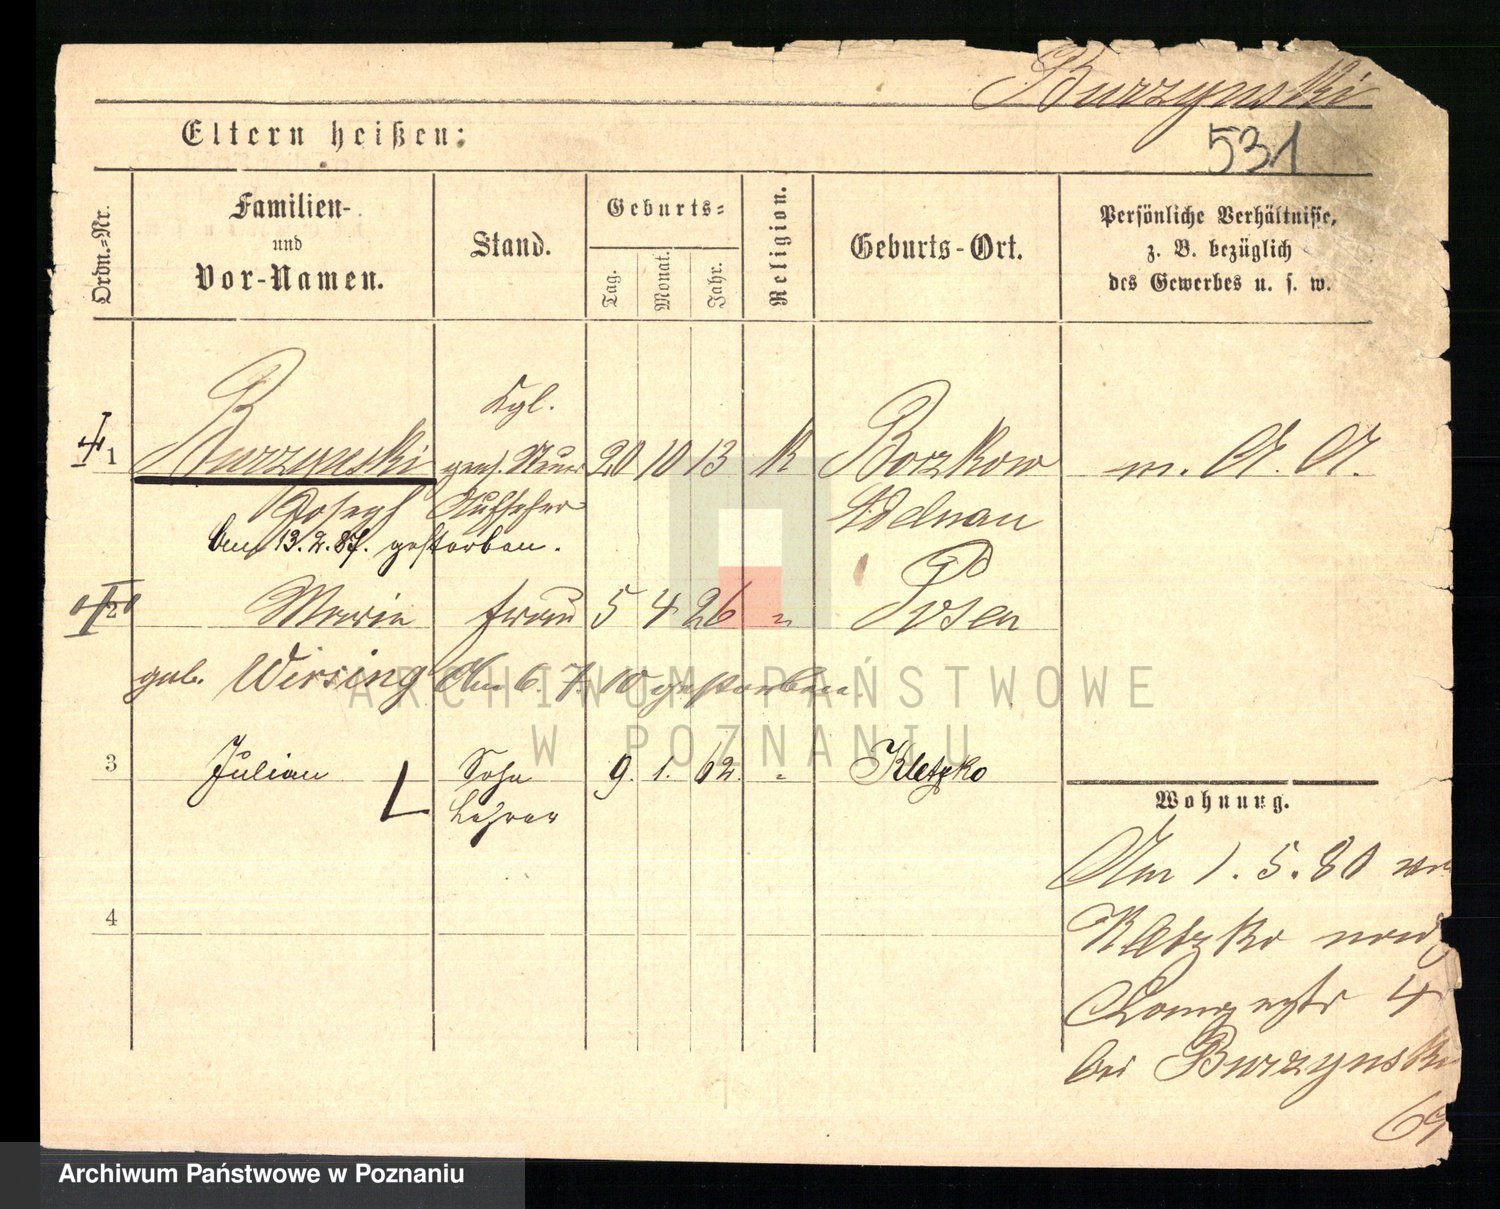 Burzynski
Eltern heißen:
531
Ordn.=Nr.
Familien-
und
Vor-Namen.
Stand.
Geburts=
Tag.
Monat.
Jahr.
Religion.
Geburts-Ort.
Persönliche Verhältnisse,
z. B. bezüglich
des Gewerbes u. s. w.
Kgl.
1 Burzynski 20 10 13 K Borzkow m. A. A.
Joseph Aufseher Adelnau
Am 13.2.87. gestorben.
2 Marie Frau 5 4 26 " Posen
geb. Wirsing Am 6. 7. 10 gestorben.
3 Julian Sohn 9. 1. 62. " Kletzko
Lehrer
Wohnung.
Am 1. 5. 80 von
4
Kletzko nach
Langestr 4
bei Burzynski
ARCHIWUM PAŃSTWOWE
W POZNANIU
Archiwum Państwowe w Poznaniu